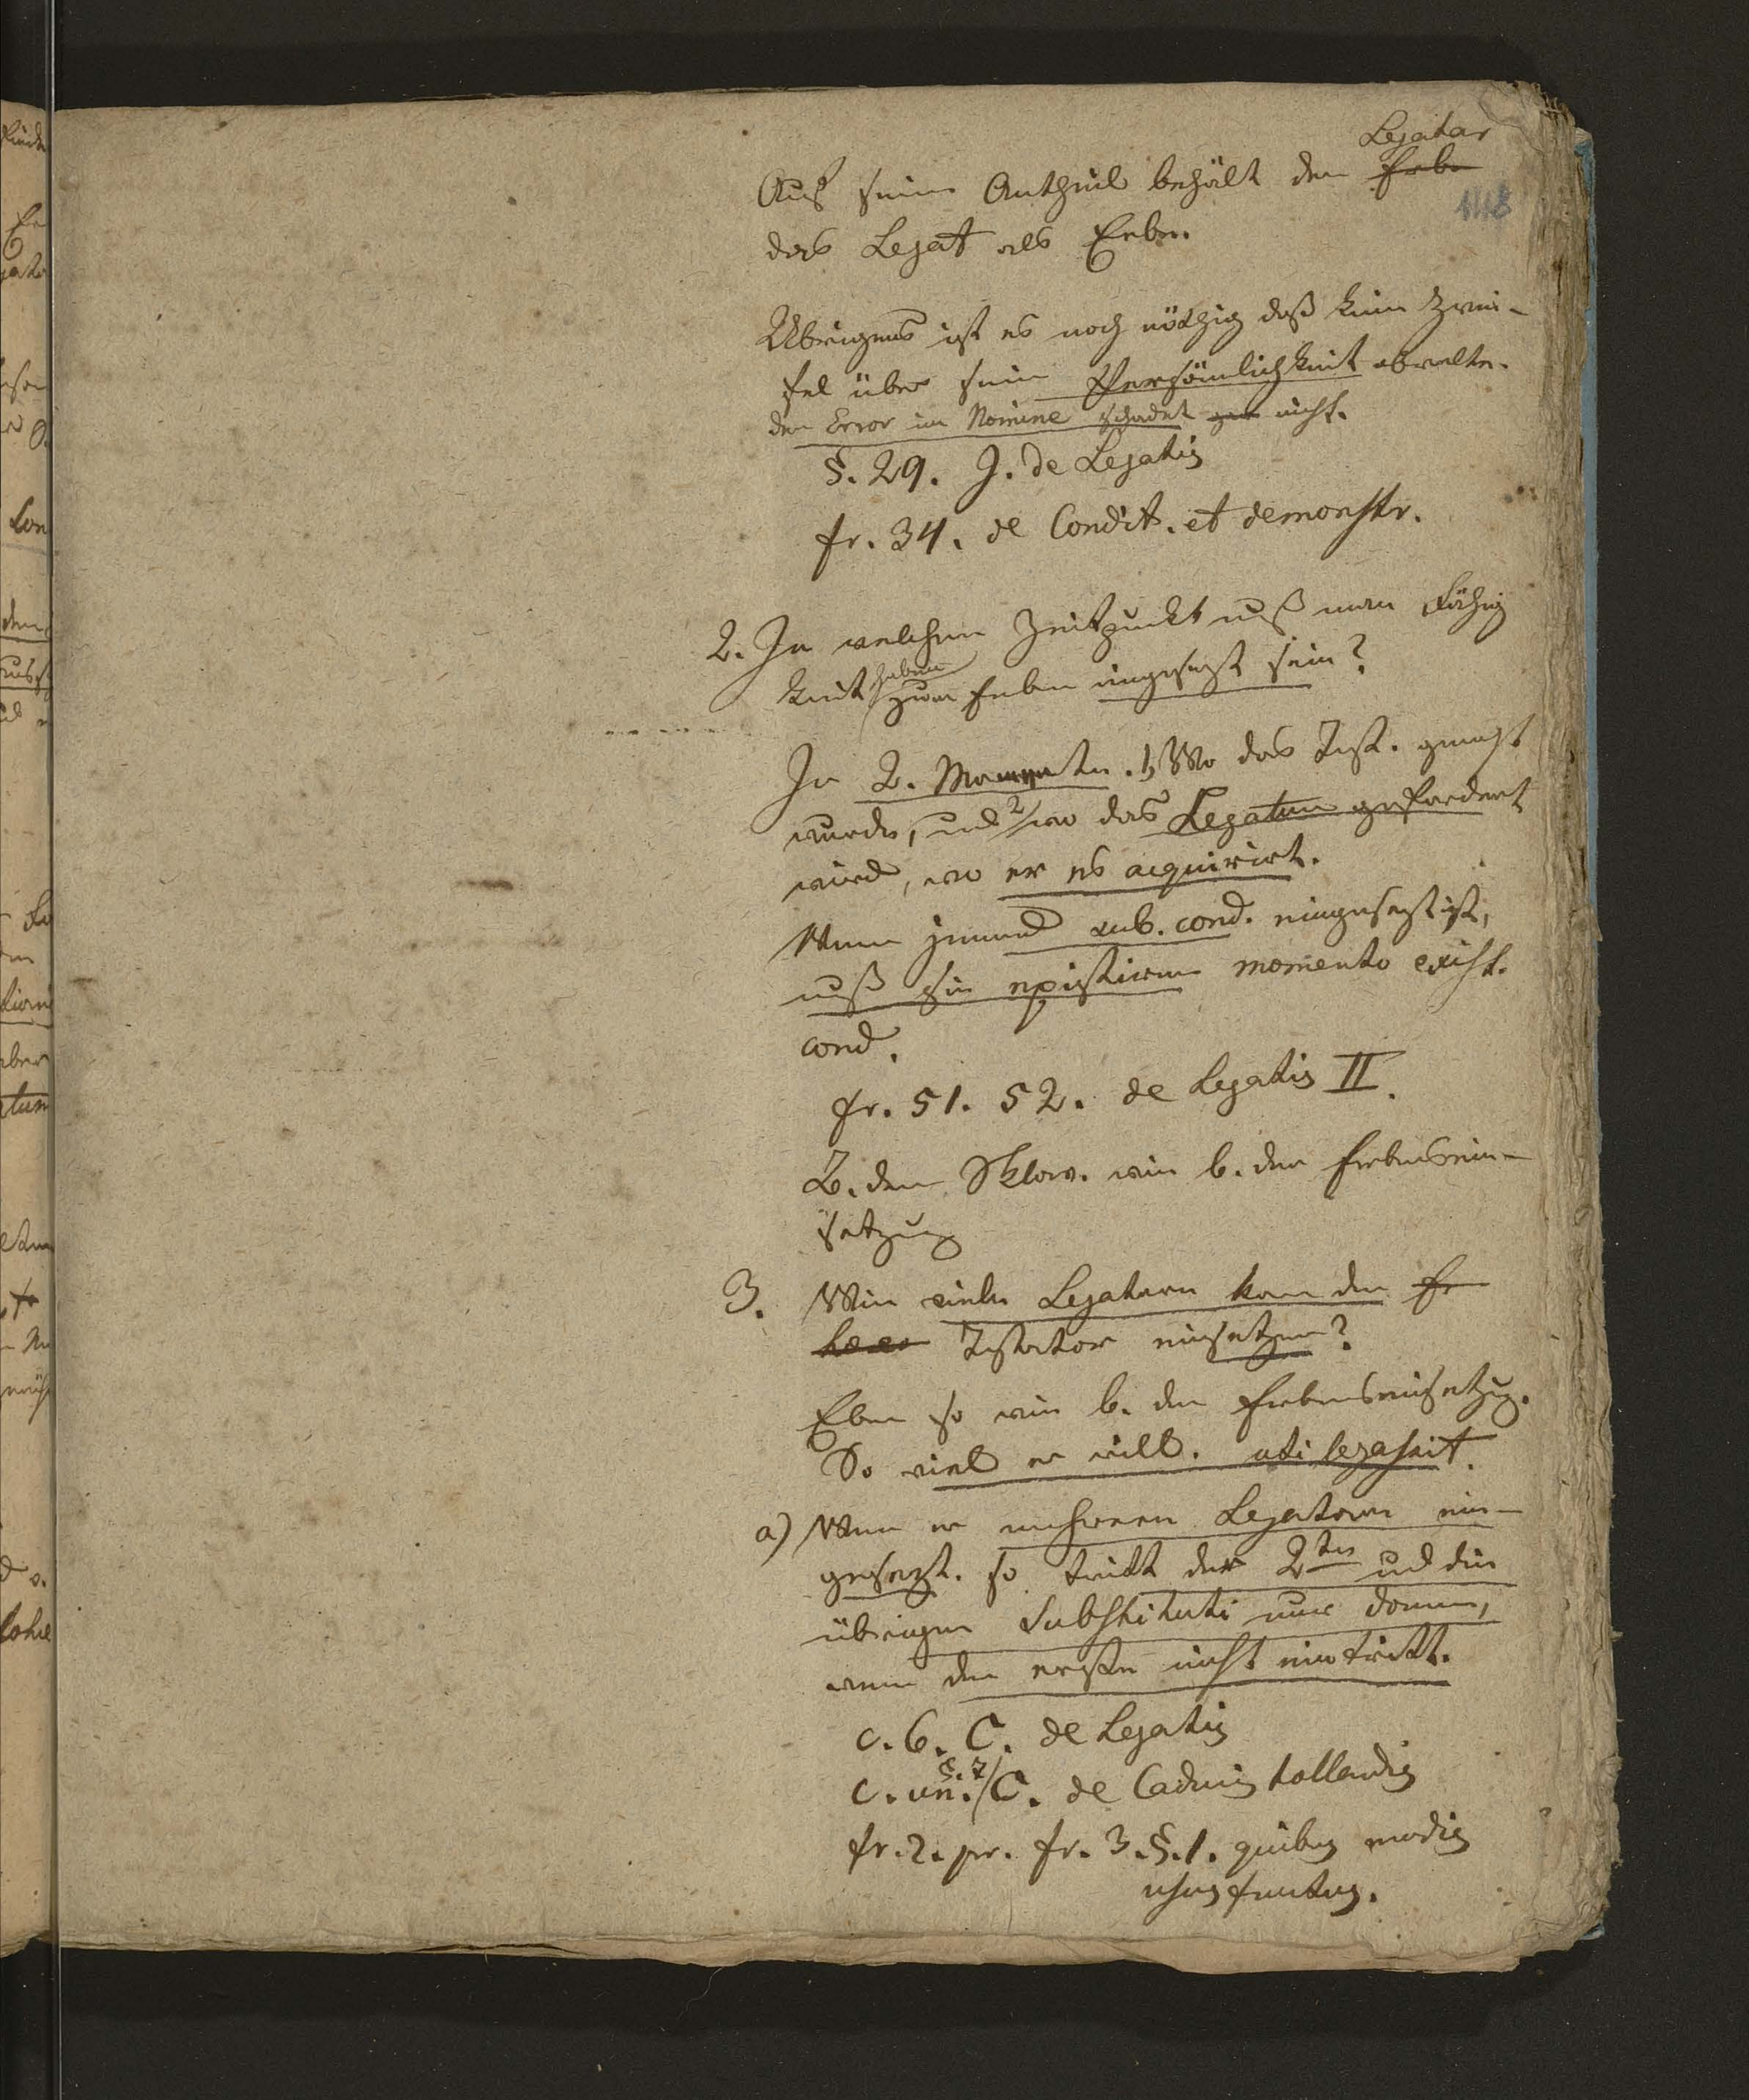 Legatar
Auf seine Antheil behält der Erbe
118
das Legat als Erbe.
Uebrigens ist es noch nöthig daß kein Zwei-
fel über seine Persönlichkeit obwalte.
der Error in Nomine schadet gar nicht.
§. 29. J. de Legatis
fr. 34. de Condit. et demonstr.
2. In welchem Zeitpunkt muß man Fähig
keit haben zum Erben eingesezt sein?
In 2. Momenten. 1) Wo das Test. gemacht
wurde, und 2) wo das Legatum gefordert
wird, wo er es acquirirt.
Wenn jemand sub. cond. eingesezt ist,
muß sie existiren momento exist.
cond.
fr. 51. 52. de Legatis II.
B. den Sklav. wie b. der Erbensein-
setzung
3. Wie viele Legatare kann der Er
heres Testator einsetzen?
Eben so wie b. der Erbenseinsetzug.
So viel er will. uti legassit.
a) Wenn er mehreren Legatare ein-
gesezt. so tritt der 2te und die
übrigen Substituti nur dann,
wenn der erste nicht eintritt.
c. 6. C. de Legatis
c. un. §. 7 C. de Caducis tollendis
fr. 2. pr. fr. 3. §. 1. quibus modis
ususfructus.